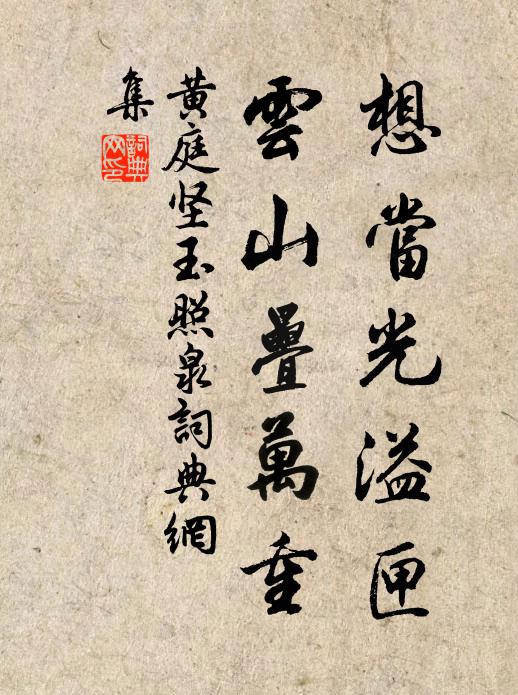 想當光溢匣
雲山疊萬重
黄庭坚玉照泉詞典網
集
詞典网印